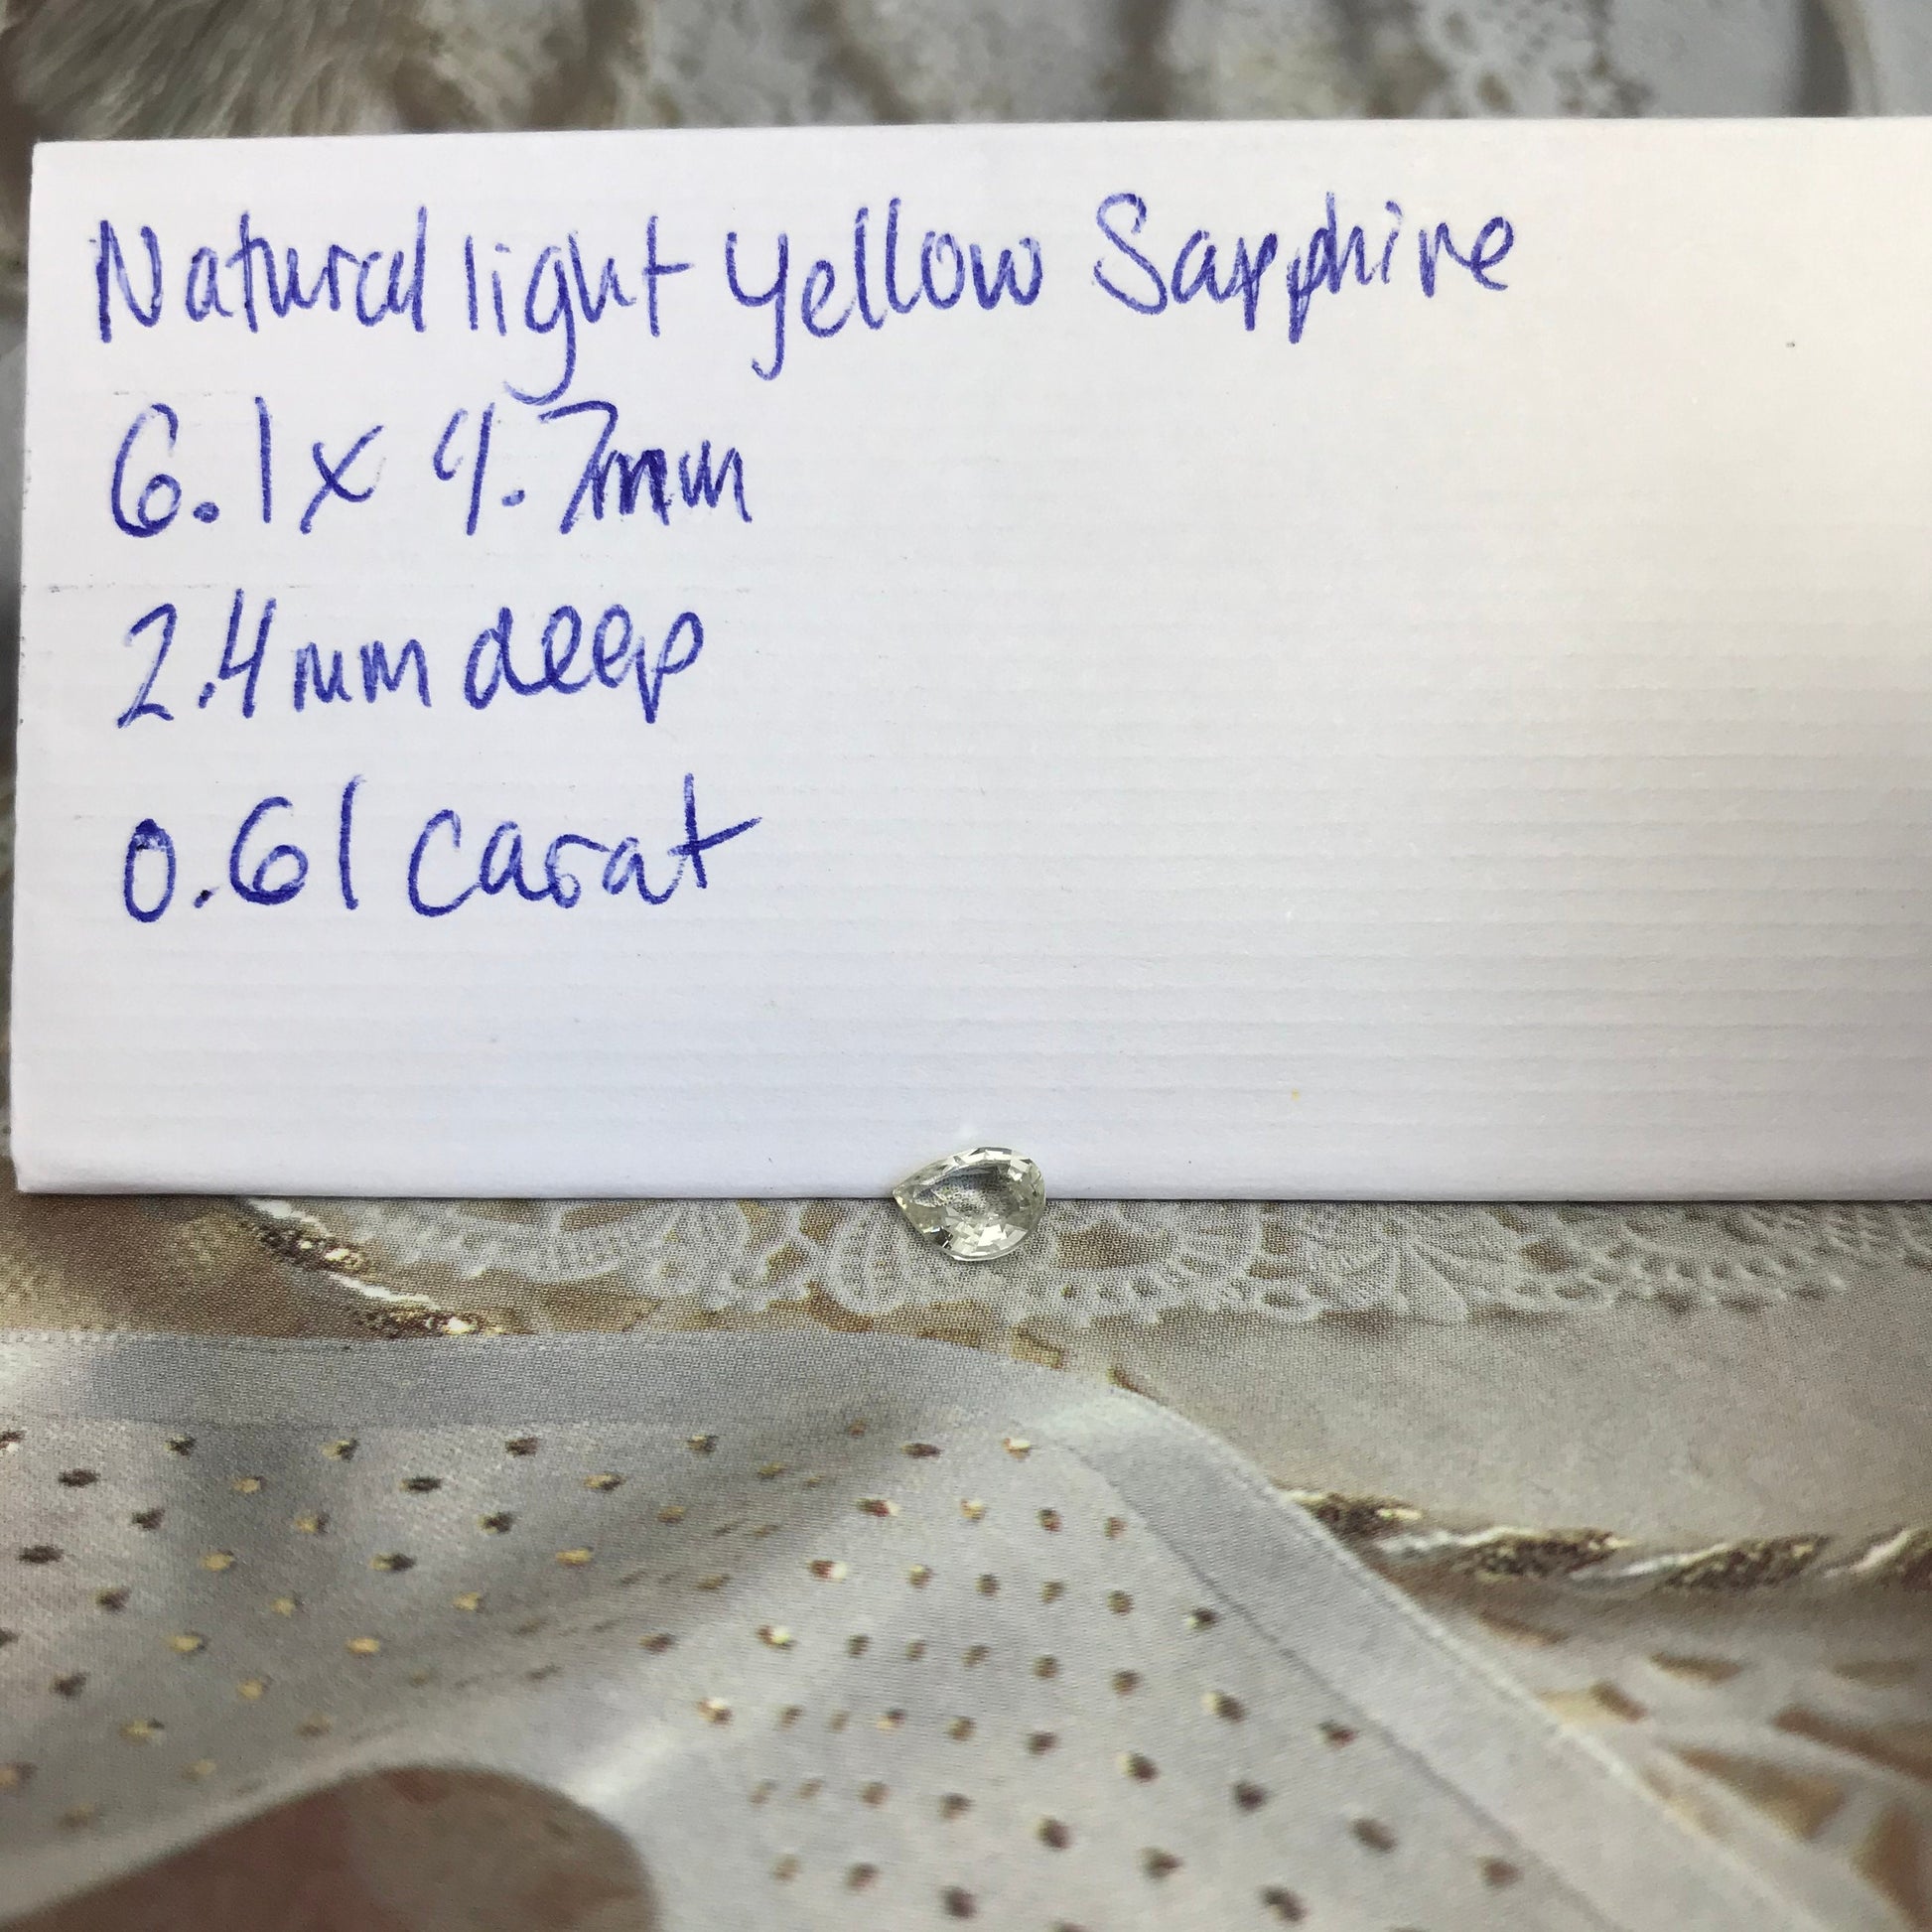 Natural light yellow Sapphire
6.1 x 4.7mm
2.4mm deep
0.61 carat